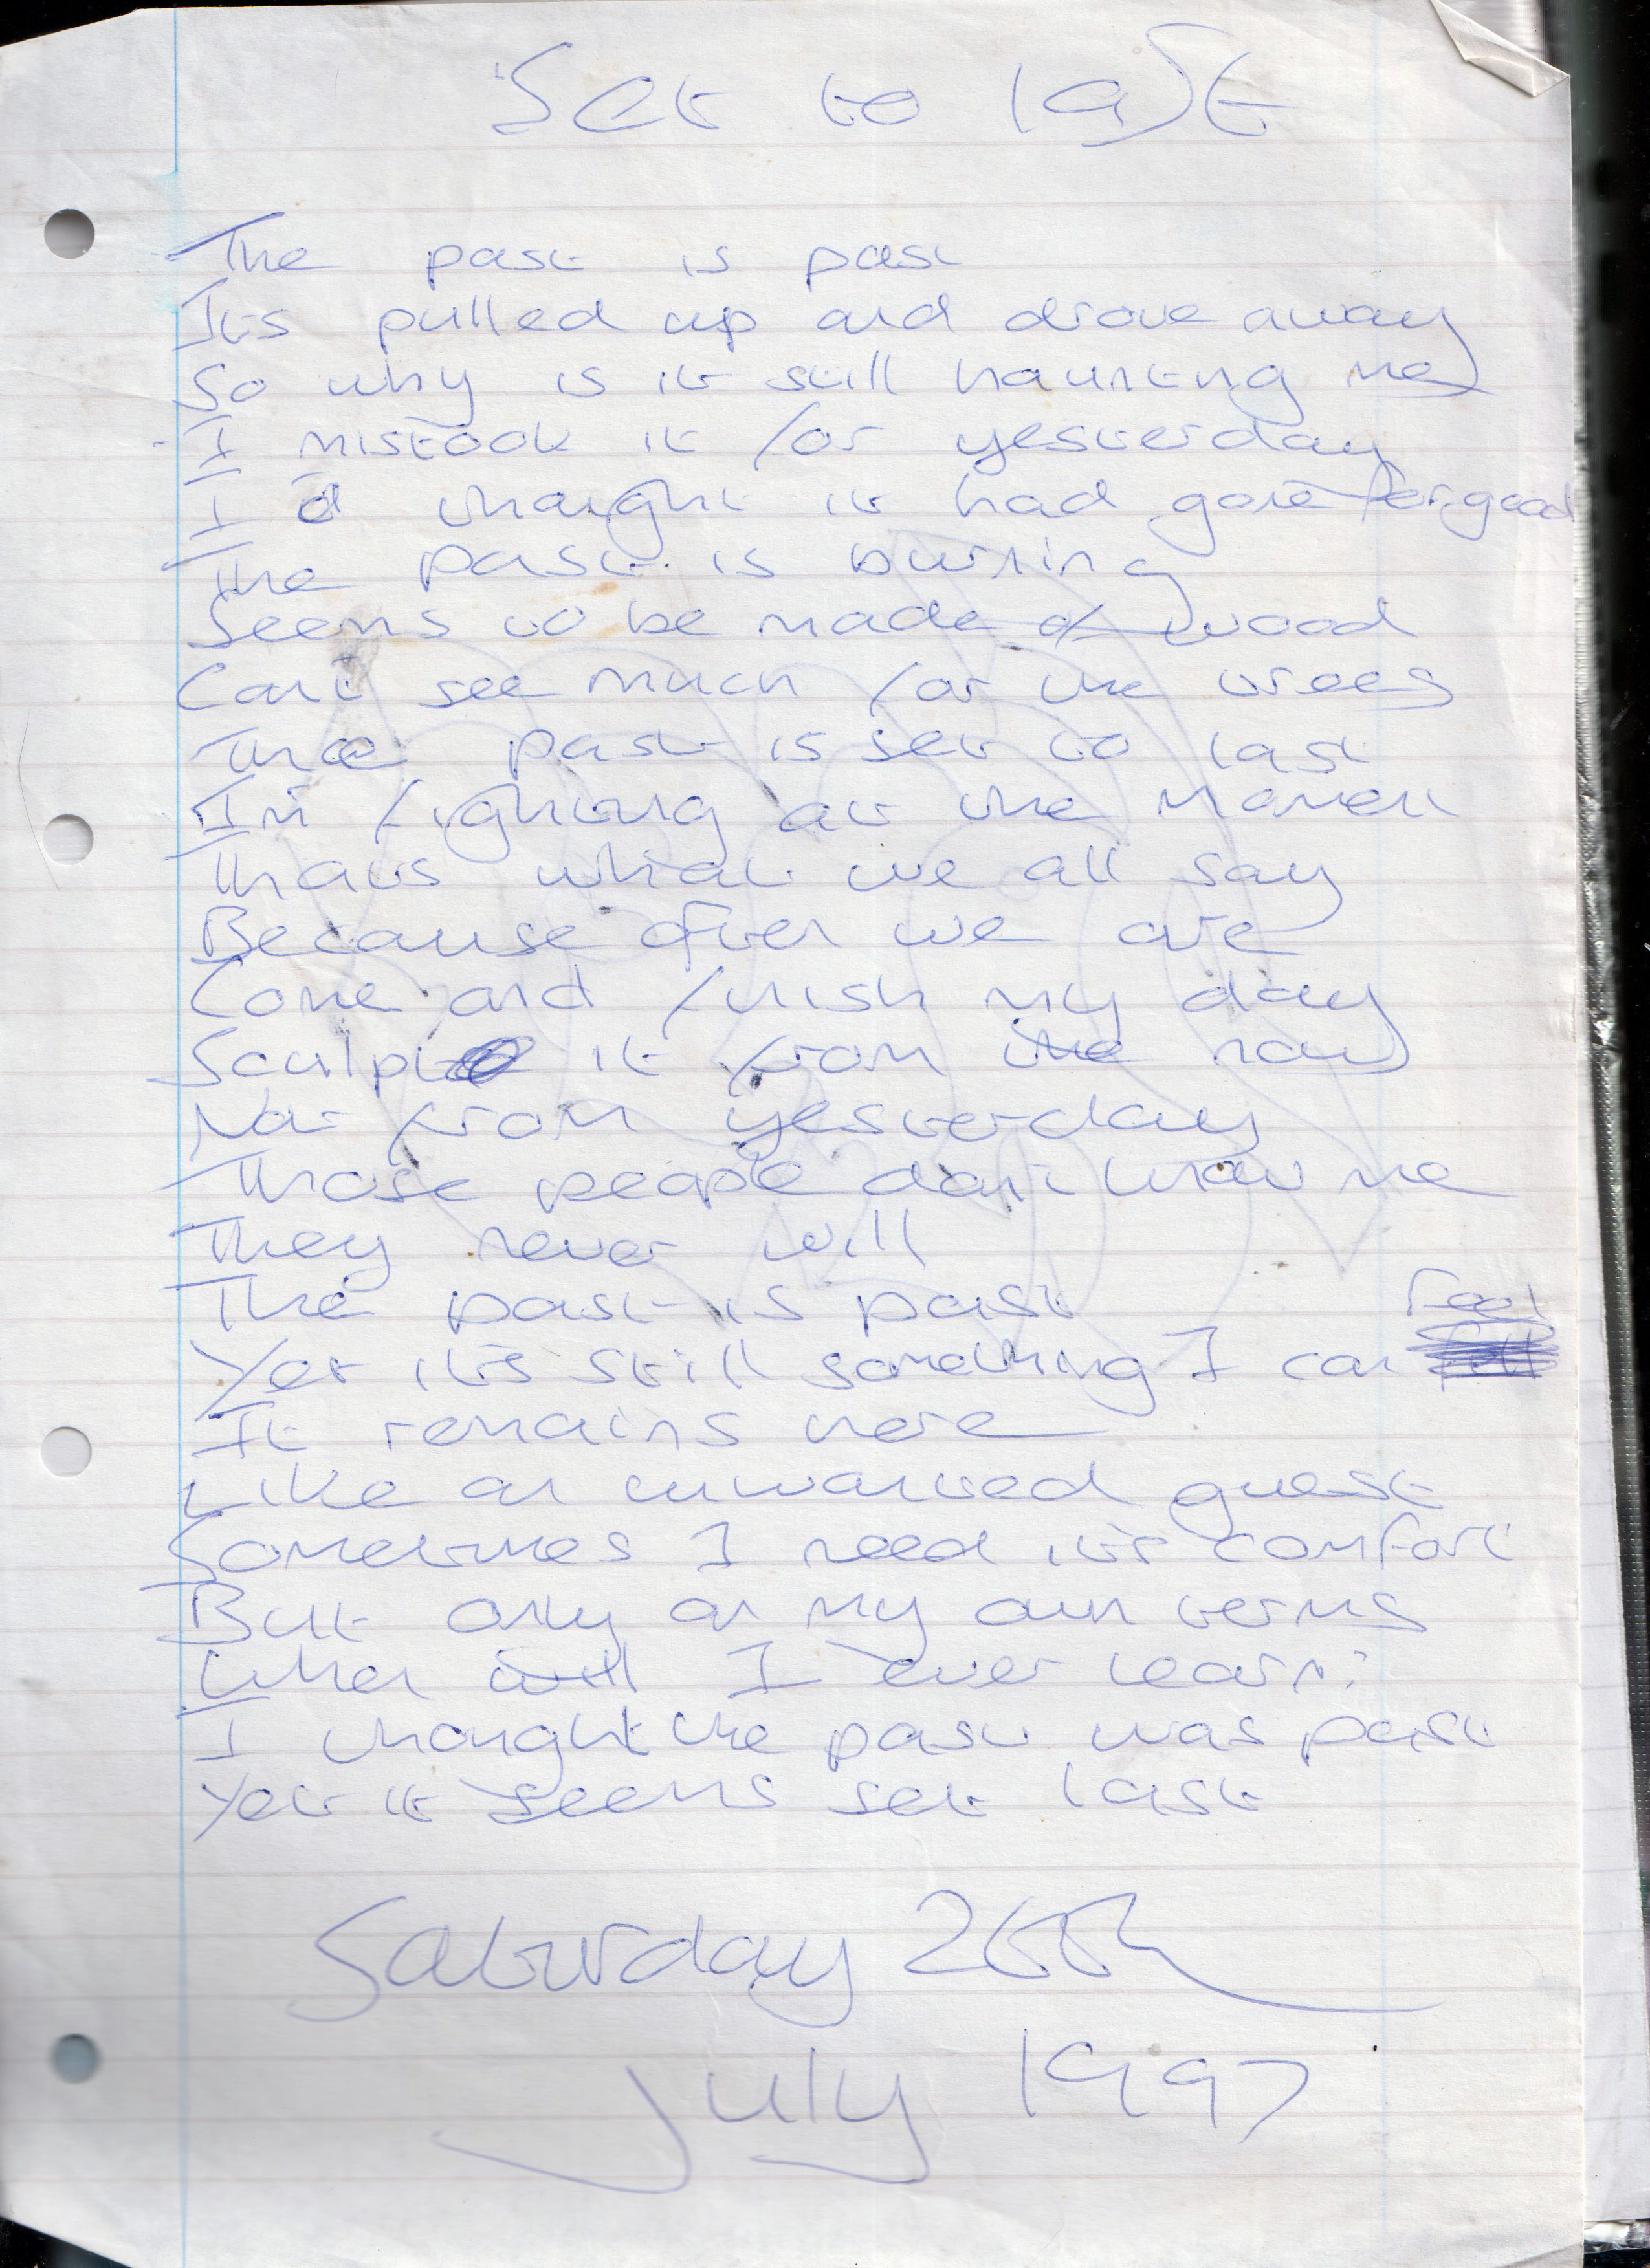 Set to last
The past is past
Its pulled up and drove away
So why is it still haunting me
I mistook it for yesterday
I d thought it had gone for good
The past is burning
Seems to be made of wood
Cant see much for the trees
The past is set to last
Im fighting at the moment
Thats what we all say
Because often we are
Come and finish my day
Sculpt it from the now
Not from yesterday
Those people dont know me
They never will
The past is past
Feel
Yet its still something I can
It remains here
Like an unwanted guest
Sometimes I need its comfort
But only on my own terms
When will I ever learn?
I thought the past was past
Yet it seems set last
Saturday 26th
July 1997